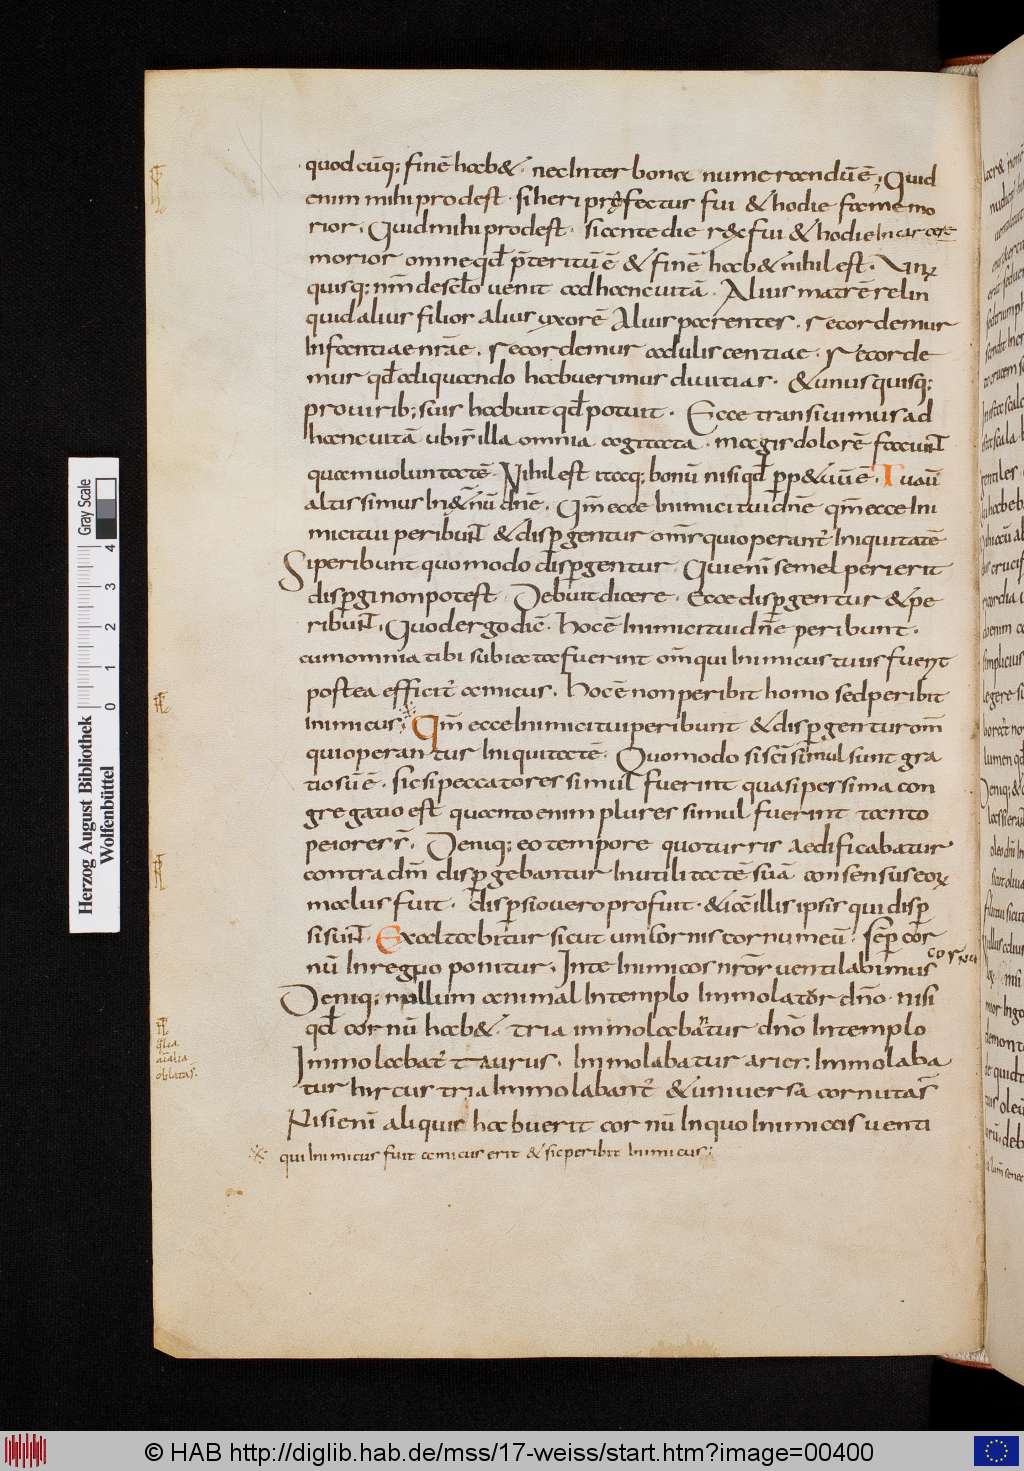 quod cūq; finē hab&. nec inter bona numerandū ē. Quid
enim mihi prodest. si heri pręfectus fui & hodie fame mo
rior. Quid mihi prodest. si ante die rex fui & hodie in carcere
morior omne qđ p̄teritū ē & finē hab& nihil est. Vn
quisq; nr̄m de sc̄lo uenit ad hanc uitā. Alius matrē relin
quid alius filios alius uxorē Alius parentes. recordemur
Infantiae nr̄ae. recordemur aduliscentiae. recorde
mur qđ aliquando habuerimus diuitias. & unus quisq;
pro uirib; suis habuit qđ potuit. Ecce transiuimus ad
hanc uitā ubi s̄ illa omnia cogitata. magis dolorē faciunt
quam uoluntatē. Nihil est itaq; bonū nisi qđ ppetuū ē. Tu aū
altissimus In &nū dn̄e. Qm̄ ecce Inimici tui dn̄e qm̄ ecce Ini
mici tui peribunt & dispgentur om̄s qui operant̄ Iniquitatē
Si peribunt quomodo dispgentur. Qui enī semel perierit
dispgi non potest. Debuit dicere. Ecce dispgentur & pe
ribunt. Quod ergo dic̄. hoc ē Inimici tui dn̄e peribunt.
cum omnia tibi subiecta fuerint om̄ qui Inimicus tuus fuerit
postea efficit̄ amicus. hoc ē non peribit homo sed peribit
inimicus. Qm̄ ecce Inimici tui peribunt & dispgentur om̄
qui operantur Iniquitatē. Quomodo si sc̄i simul sunt gra
tiosū ē. sic si peccatores simul fuerint quasi pessima con
gregatio est quanto enim plures simul fuerint tanto
peiores s̄. Deniq; eo tempore quo turris aedificabatur
contra dm̄ dispgebantur In utilitatē suā consensus eoꝝ
malus fuit. dispsio uero profuit. & iā illis ipsis qui disp
si sunt. Exaltabitur sicut unicornis cornu meū. semp cor
cornu
nū In regno ponitur. In te Inimicos nr̄os uentilabimus
Deniq; nullum animal In templo Immolatur dn̄o. nisi
qđ cornū hab&. tria immolabantur dn̄o In templo
Immolabat̄ Taurus. Immolabatur aries. Immolaba
tur hircus tria Immolabant̄ & uniuersa cornuta s̄
Nisi enī aliquis habuerit cornū In quo Inimicos uenti
qui Inimicus fuit amicus erit & sic peribit Inimicus;
qualia
aīalia
oblatas.
Herzog August Bibliothek
Wolfenbüttel
0 1 2 3 4
Gray Scale
© HAB http://diglib.hab.de/mss/17-weiss/start.htm?image=00400